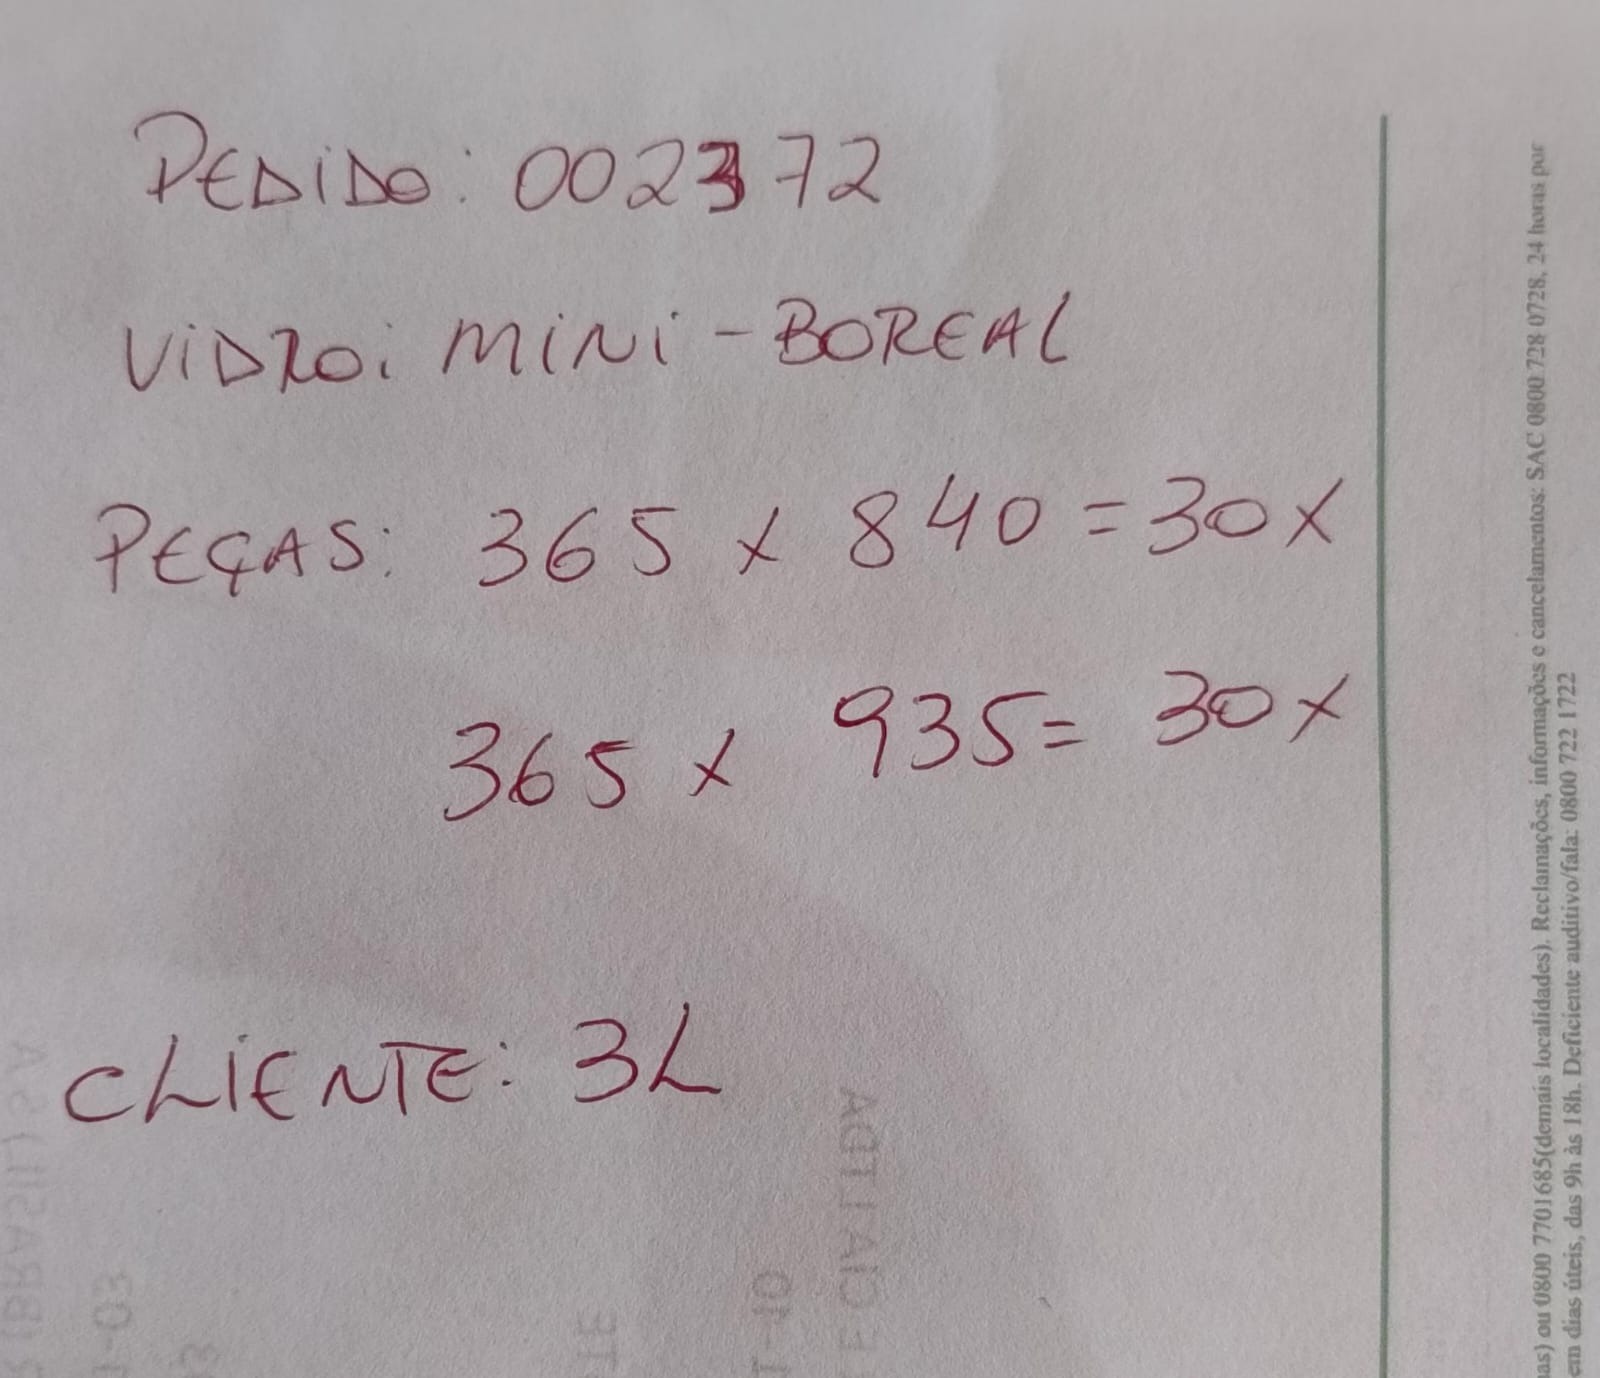 PEDIDO: 002372
VIDRO: MINI-BOREAL
PEÇAS: 365 x 840 = 30x
365 x 935 = 30x
CLIENTE: 3L
as) ou 0800 7701685(demais localidades). Reclamações, informações e cancelamentos: SAC 0800 728 0728, 24 horas por
em dias úteis, das 9h às 18h. Deficiente auditivo/fala: 0800 722 1722